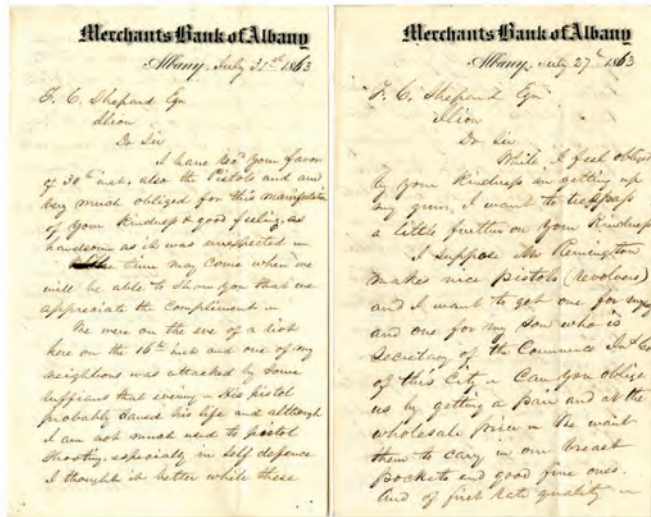 Merchants Bank of Albany
Albany, July 31st 1863
F. C. Shepard Esqr
Ilion
Dr Sir
I have recd your favor
of 30th inst, also the Pistols and am
very much obliged for this manifestation
of your Kindness & good feeling, as
handsome as it was unexpected
time may come when we
will be able to show you that we
appreciate the compliment
We were on the eve of a riot
here on the 16th inst and one of my
neighbors was attacked by some
ruffians that evening His pistol
probably saved his life and although
I am not much used to pistol
shooting, especially in self defence
I thought it better while these
Merchants Bank of Albany
Albany, July 27th 1863
F. C. Shepard Esqr
Ilion
Dr Sir
While I feel obliged
by your Kindness in getting up
my guns, I want to trespass
a little further on your Kindness
I suppose Mr Remington
makes nice pistols (revolvers)
and I want to get one for myself
and one for my son who is
Secretary of the Commerce Ins Co
of this City Can you oblige
us by getting a pair and at the
wholesale price We want
them to cary in our breast
pockets and good fine ones.
And of first rate quality